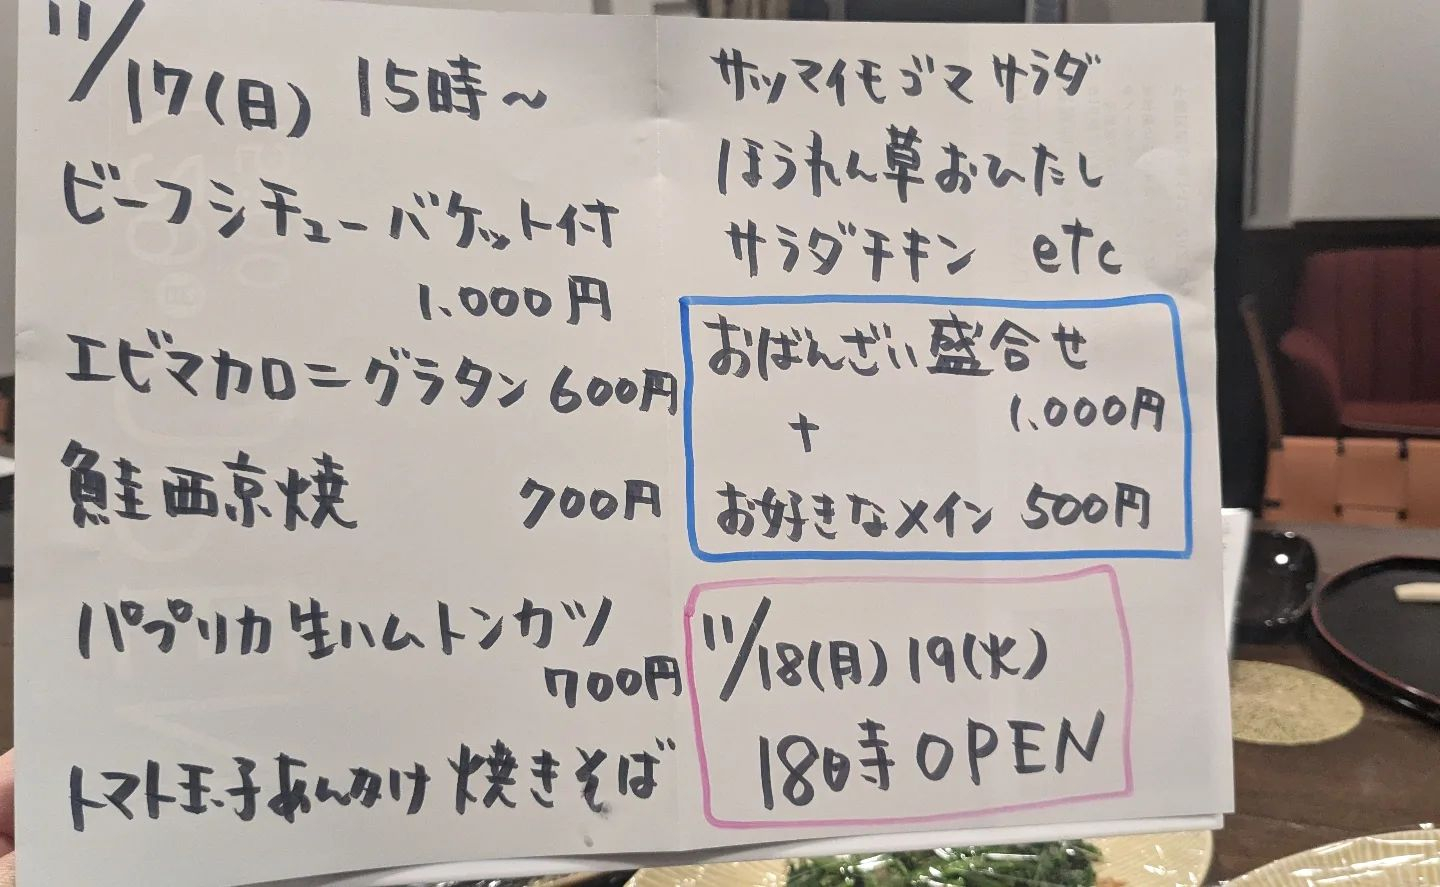 11/17(日) 15時～
ビーフシチューバケット付
1.000円
エビマカロニグラタン 600円
鮭西京焼 700円
パプリカ生ハムトンカツ
700円
トマト玉子あんかけ焼きそば
サツマイモゴマサラダ
ほうれん草おひたし
サラダチキン etc
おばんざい盛合せ
1.000円
+
お好きなメイン 500円
11/18(月) 19(火)
18時OPEN